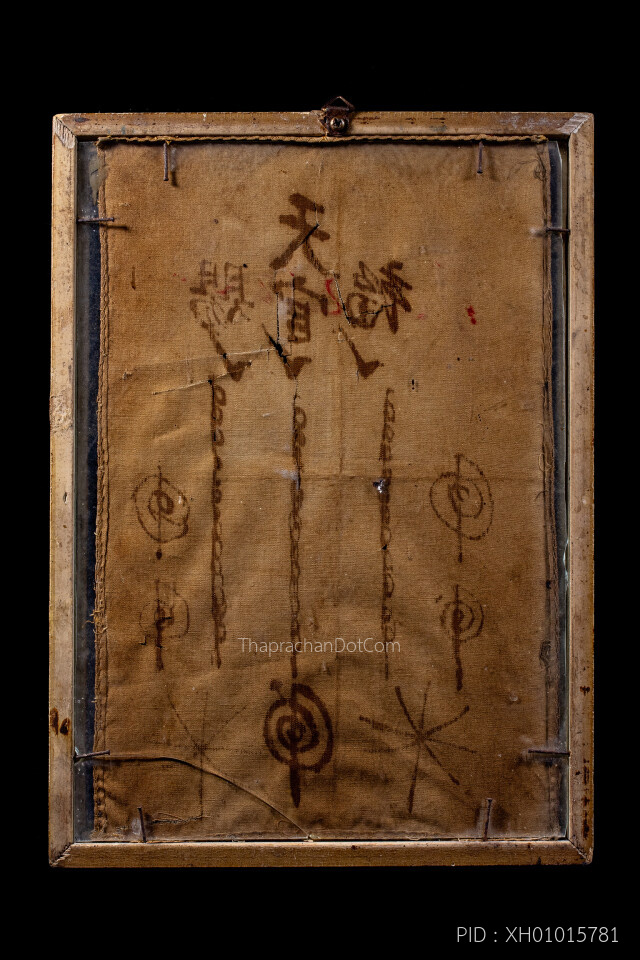 天官
賜
福
ThaprachanDotCom
PID : XH01015781